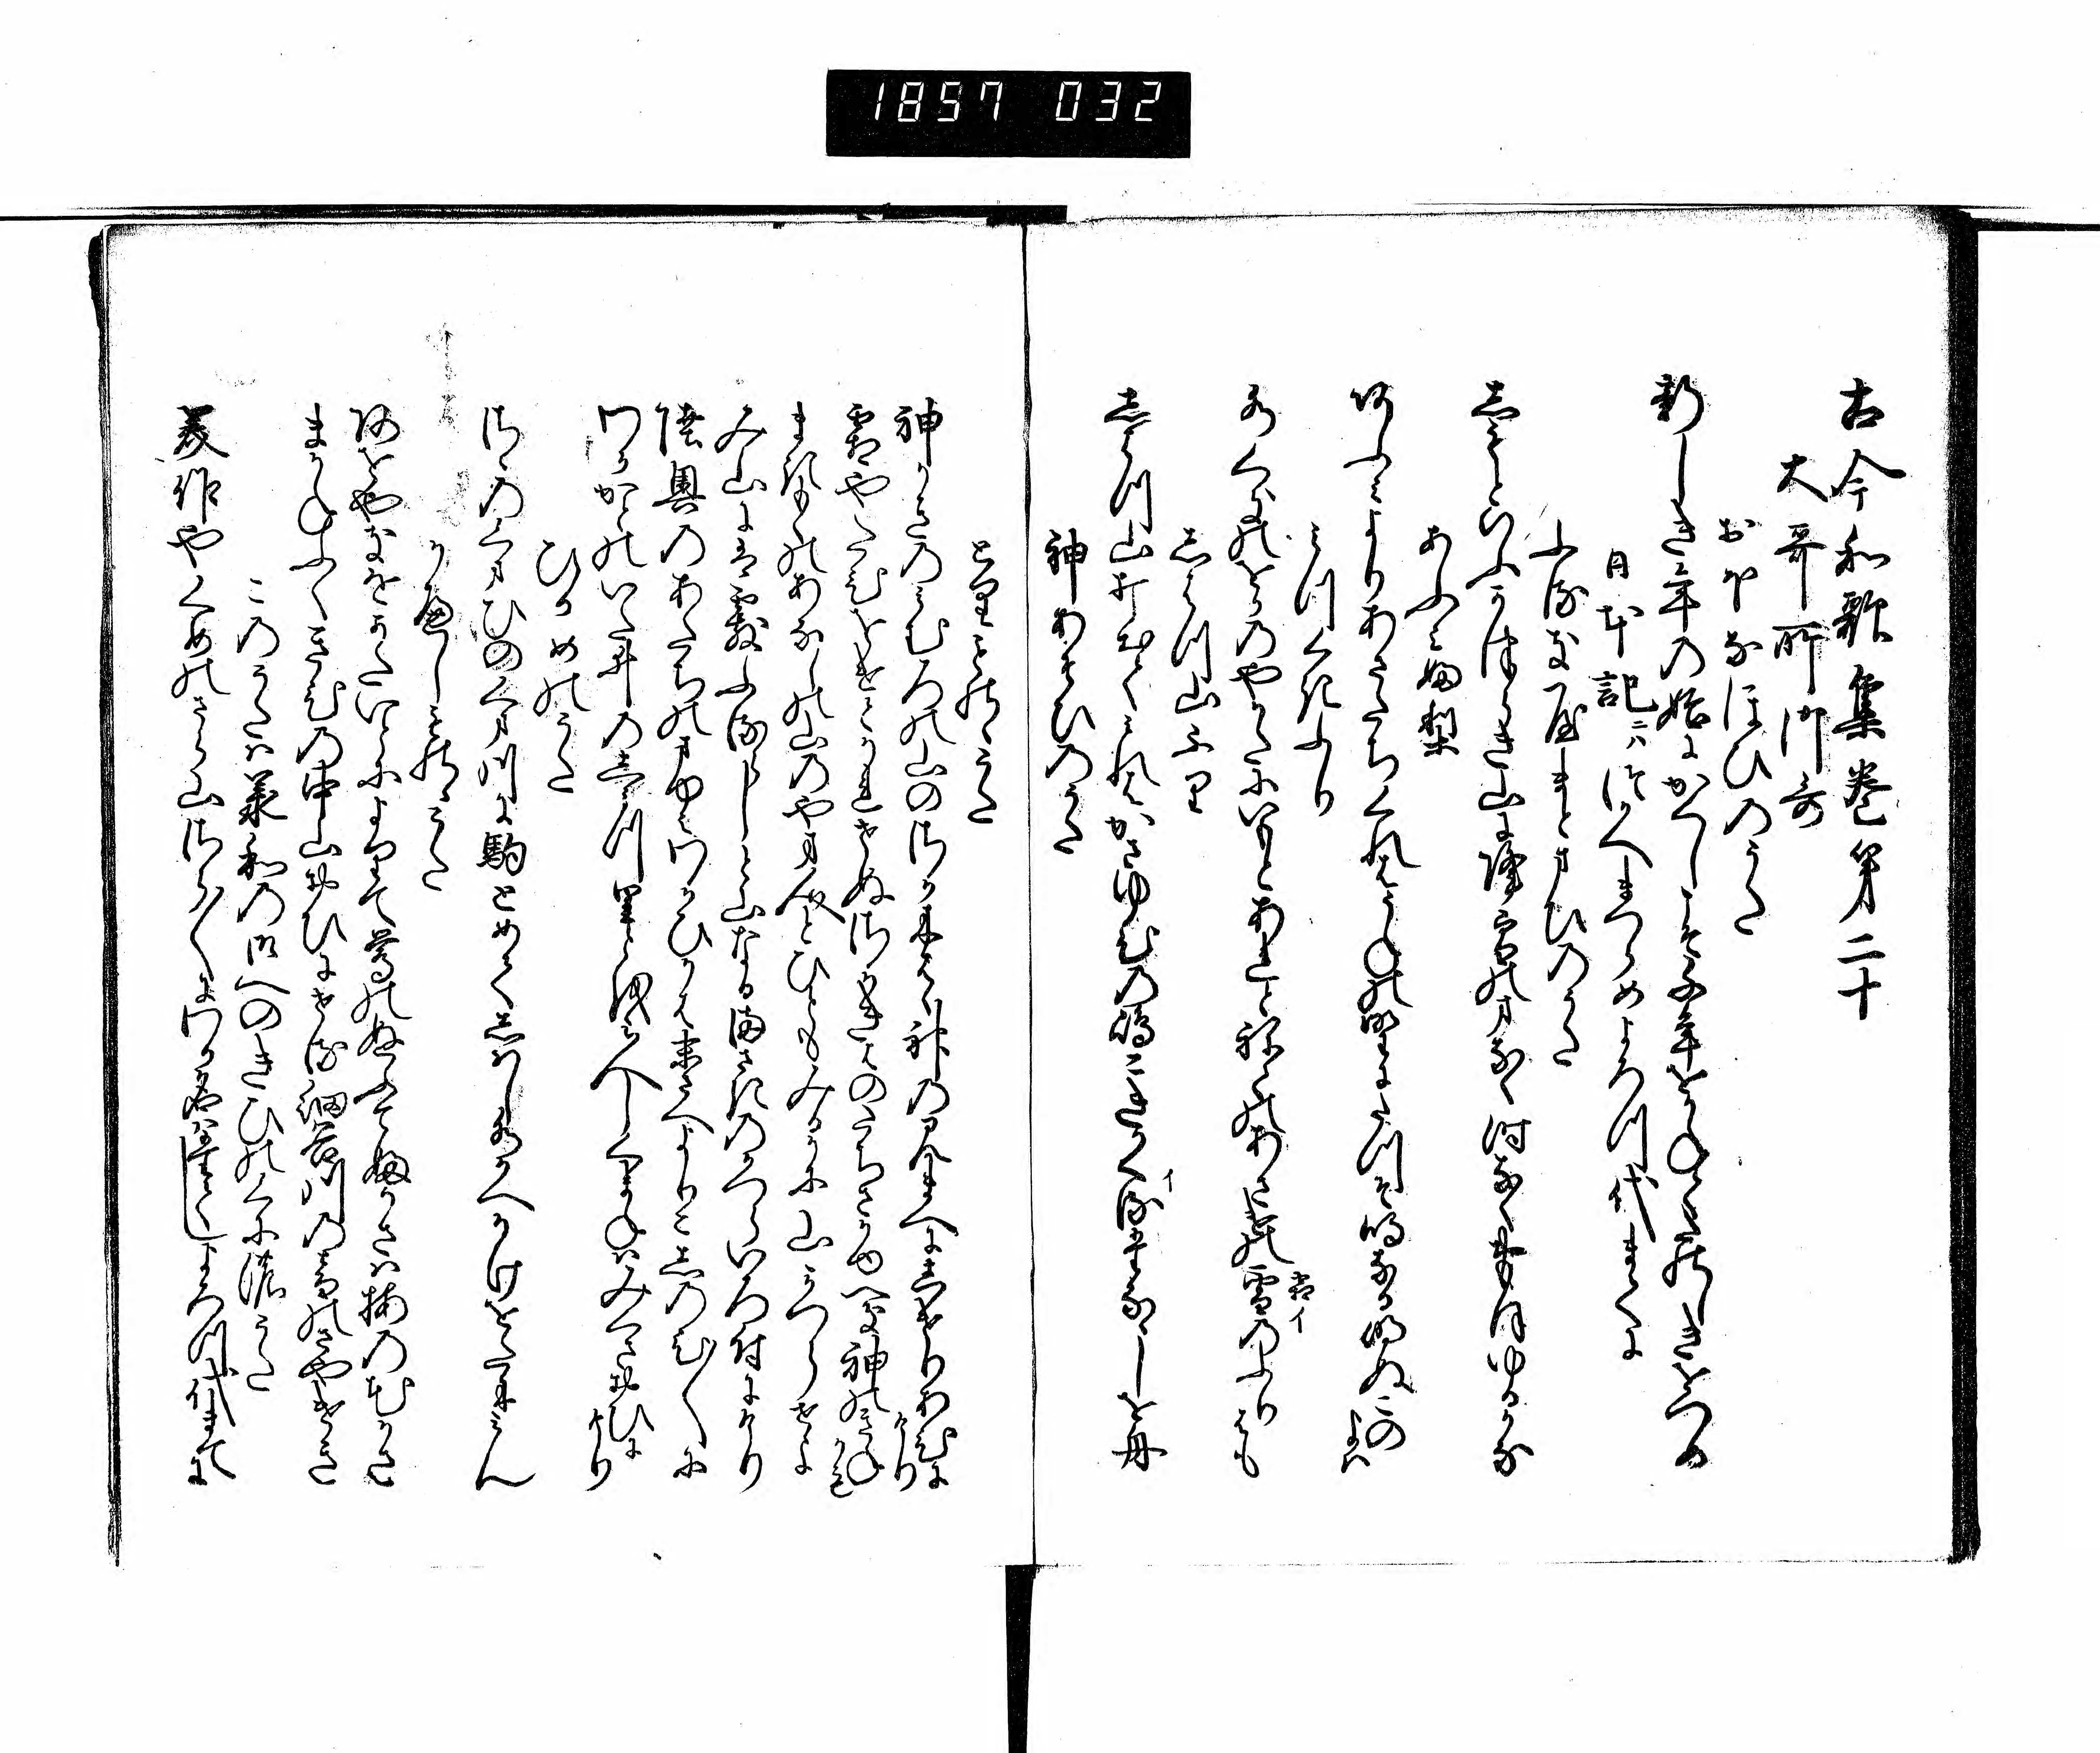 1857 032
古今和歌集巻第二十
大哥所御哥
おほなほひのうた
新しき年の始にかくしこそ千年をかねてたのしきをつめ
日本記ニハつかへまつらめよろつ代まてに
ふるきやまとまひのうた
しもとゆふかつらき山に降雪のまなく時なくおもほゆるかな
あふみ婦梨
あふみよりあさたちくれはうねの野にたつそ鳴なる明ぬこのよは
みつくきふり
水くきのをかのやかたにいもとあれとねてのあさけの霜のふりはも
雪イ
しはつ山ふり
しはつ山打いてゝみれはかさゆひの嶋こきかくるたなゝしを舟
イ
神あそひのうた
とりものゝうた
神かきのみむろの山のさか木はゝ神のみまへにしけりあひにけり
霜やたひをけとかれせぬさかきはのたちさかゆへき神のきねかも
まきもくのあなしの山のやま人とひともみるかに山かつらせよ
み山には霰ふるらしと山なるまさきのかつらいろ付にけり
陸奥のあたちのまゆみわかひかは末さへよりこしのひ〳〵に
わかかとのいた井のし水里とをみ人しくまねはみくさおひにけり
ひるめのうた
さゝのくまひのくま川に駒とめてしはし水かへかけをたにみん
かへしものゝうた
あをやきをかたいとによりて鶯のぬふてふ笠は梅の花かさ
まかねふくきひの中山おひにせる細谷川の音のさやけさ
このうたは承和の御へのきひのくにの哥
美作やくめのさら山さら〳〵にわか名はたてしよろつ代まてに